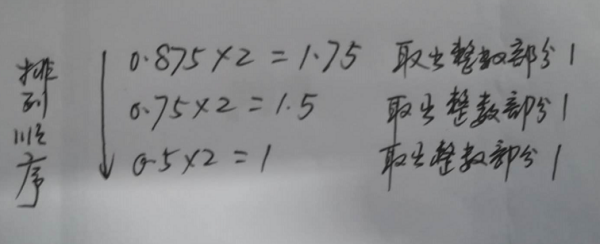 排列顺序
0.875×2=1.75 取出整数部分1
0.75×2=1.5 取出整数部分1
0.5×2=1 取出整数部分1